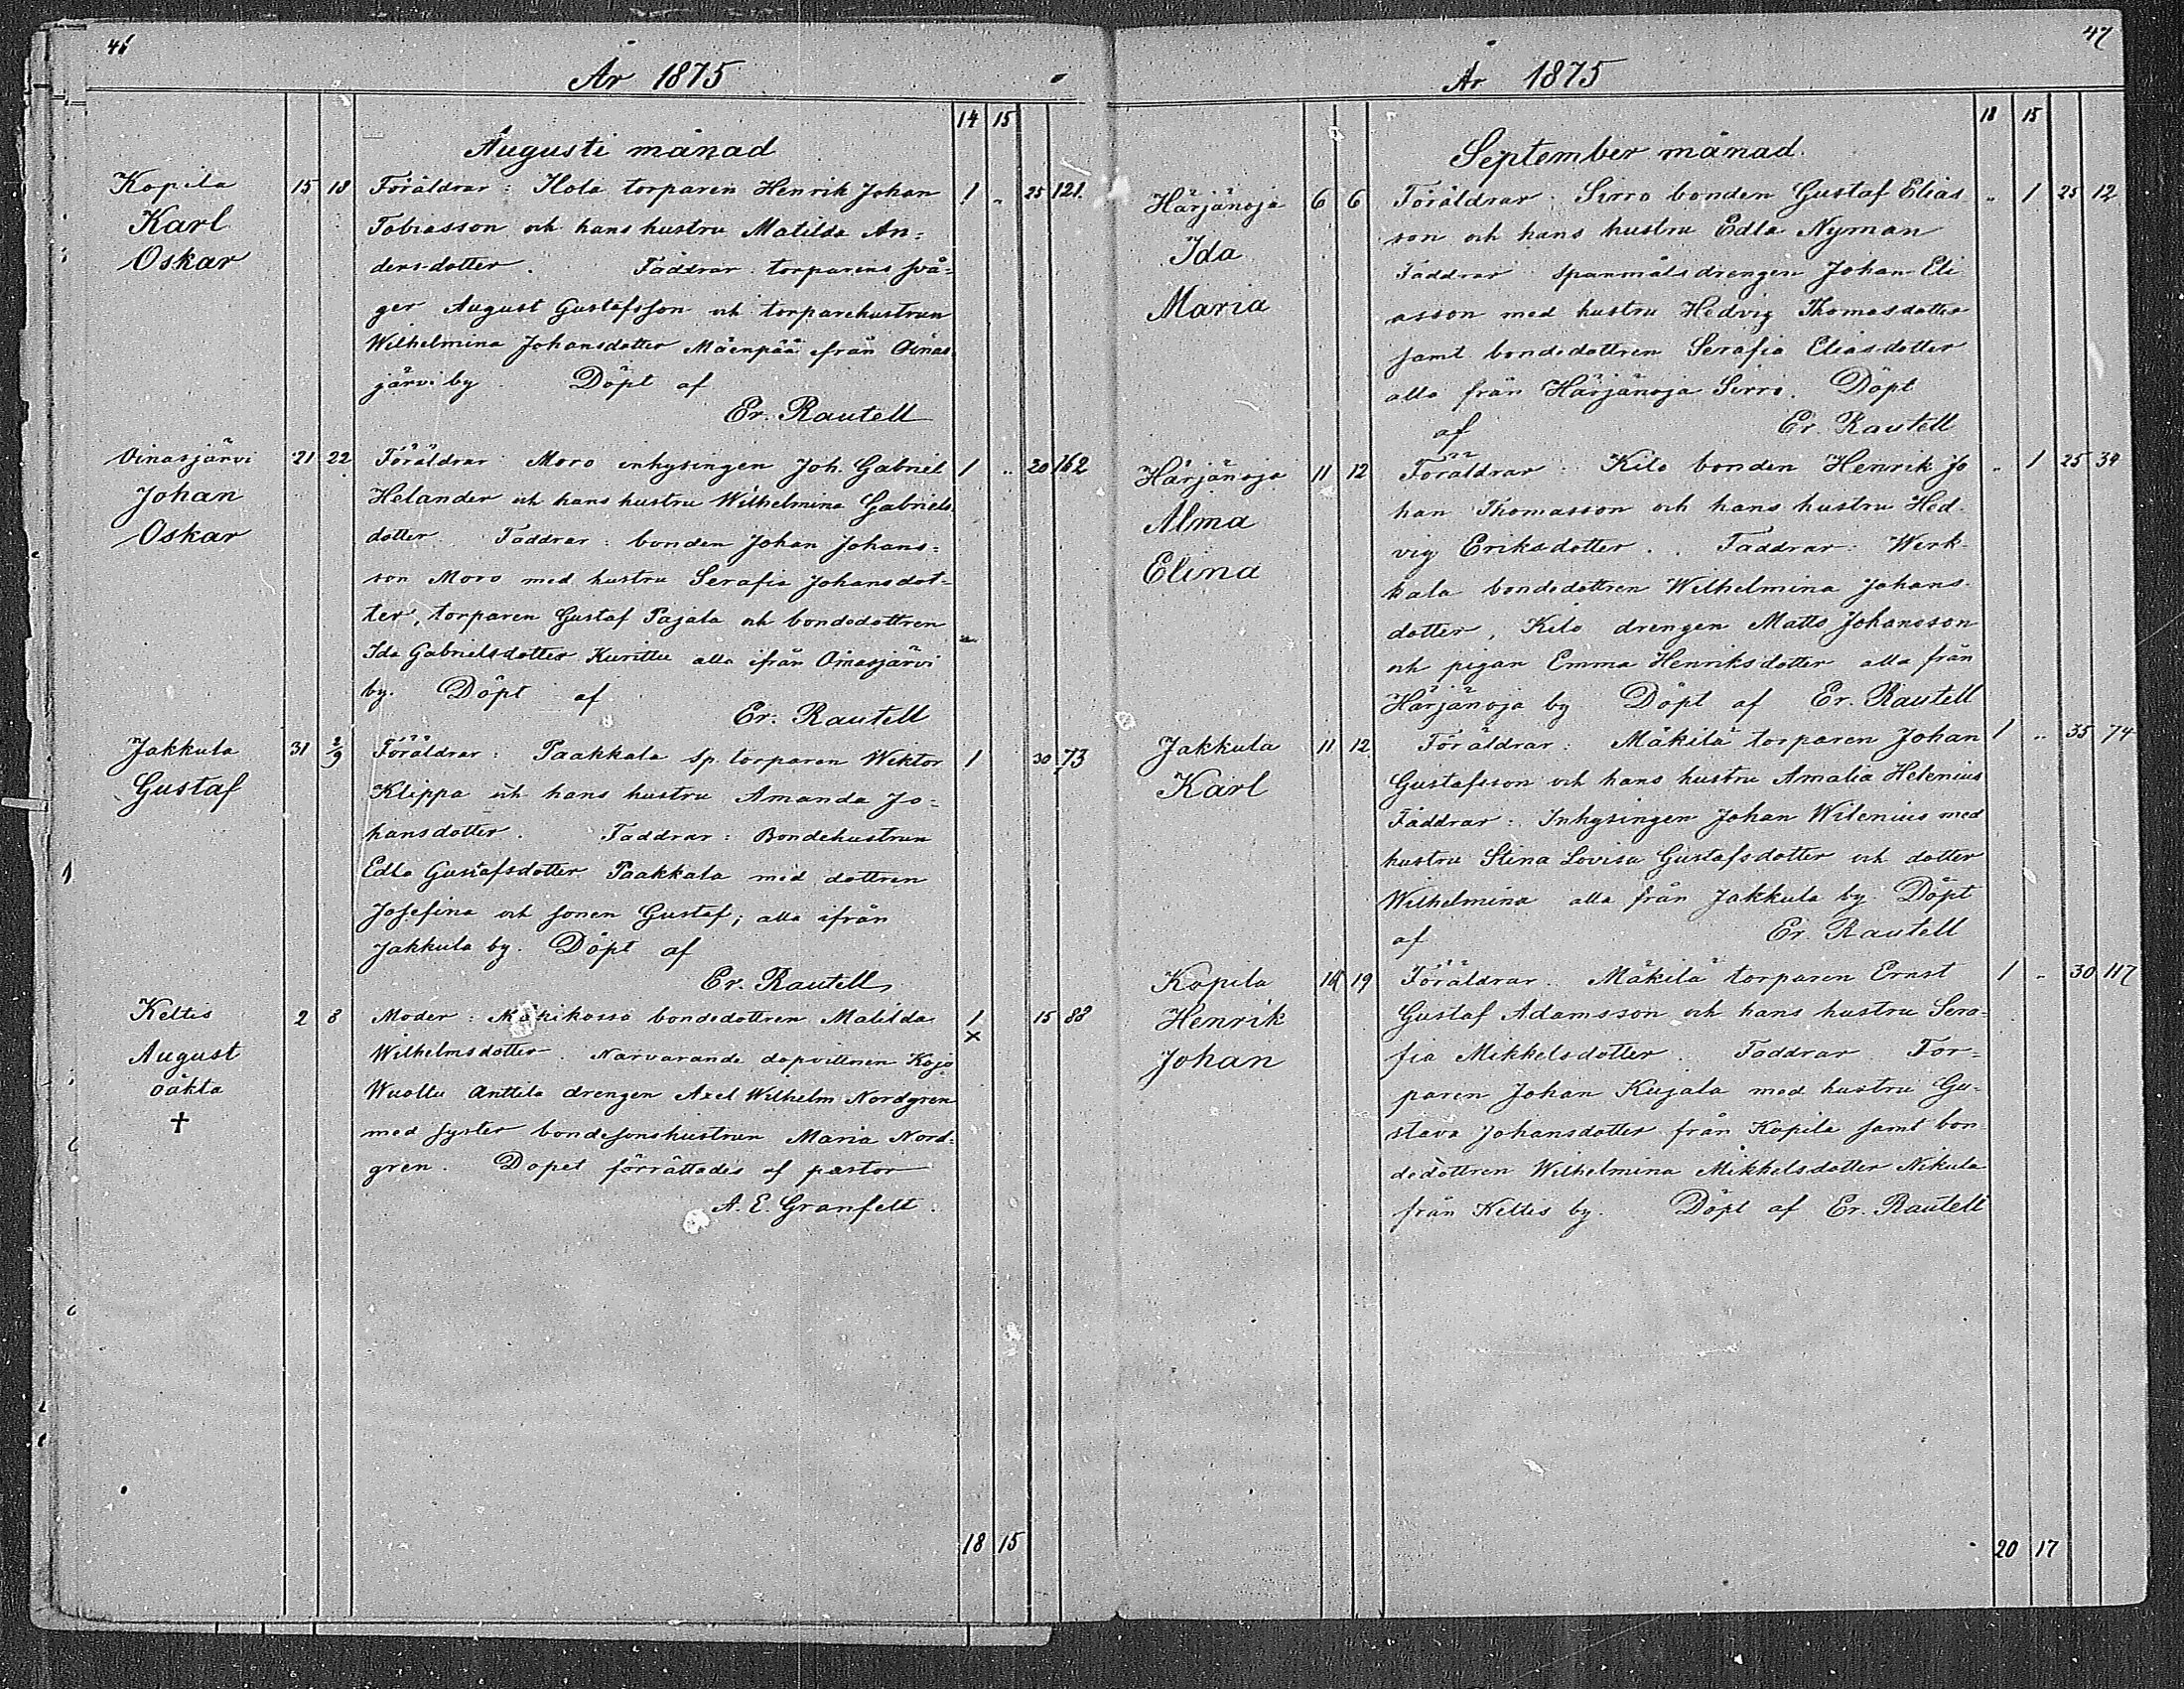 46
År 1875
14 15
Augusti månad
Kopila 15 18 Föräldrar: Hola torparen Henrik Johan 1 „ 25 121.
Karl Tobiasson och hans hustru Matilda An=
Oskar dersdotter. Faddrar: torparens svå=
ger August Gustafsson och torparehustrun
Wilhelmina Johansdotter Mäenpää ifrån Oinas
järvi by. Döpt af
Er. Rautell
Oinasjärvi 21 22 Föräldrar: Moro inhysingen Joh. Gabriel 1 „ 20 162
Johan Helander och hans hustru Wilhelmina Gabriels
Oskar dotter. Faddrar: bonden Johan Johans=
son Moro med hustru Serafia Johansdot=
ter, torparen Gustaf Pajala och bondedottren
Ida Gabrielsdotter Kurittu alla ifrån Oinasjärvi
by. Döpt af
Er. Rautell
Jakkula 31 2/9 Föräldrar: Paakkala sp. torparen Wiktor 1 30 73
Gustaf Klippa och hans hustru Amanda Jo=
hansdotter. Faddrar: Bondehustrun
Edla Gustafsdotter Paakkala med dottren
Josefina och sonen Gustaf; alla ifrån
Jakkula by. Döpt af
Er. Rautell
Keltis 2 8 Moder: bondedottren Matilda 1 15 88
August Wilhelmsdotter. Närvarande dopvittnen Kojo ×
oäkta Wuoltu Anttila drengen Axel Wilhelm Nordgren
† med syster bondesonshustrun Maria Nord=
gren. Dopet förrättades af pastor
A. E. Granfelt.
18 15
47
År 1875
18 15
September månad.
Härjänoja 6 6 Föräldrar: Sirro bonden Gustaf Elias „ 1 25 12
Ida son och hans hustru Edla Nyman
Faddrar spanmålsdrengen Johan Eli
Maria asson med hustru Hedvig Thomasdotter
samt bondedottren Serafia Eliasdotter
alla från Härjänoja Sirro. Döpt
af Er. Rautell
Härjänoja 11 12 Föräldrar: Kilo bonden Henrik Jo „ 1 25 34
Alma han Thomasson och hans hustru Hed-
Elina vig Eriksdotter. Faddrar: Werk-
kala bondedottren Wilhelmina Johans-
dotter, Kilo drengen Matts Johansson
och pigan Emma Henriksdotter alla från
Härjänoja by Döpt af Er. Rautell
Jakkula 11 12 Föräldrar: Mäkilä torparen Johan 1 „ 35 74
Karl Gustafsson och hans hustru Amalia Helenius
Faddrar: Inhysingen Johan Wilenius med
hustru Stina Lovisa Gustafsdotter och dotter
Wilhelmina alla från Jakkula by. Döpt
af Er. Rautell
Kopila 14 19 Föräldrar: Mäkilä torparen Ernst 1 „ 30 117
Henrik Gustaf Adamsson och hans hustru Sera-
Johan fia Mikkelsdotter. Faddrar Tor=
paren Johan Kujala med hustru Gu-
stava Johansdotter från Kopila samt bon
dedottren Wilhelmina Mikkelsdotter Nikula
från Keltis by. Döpt af Er. Rautell
20 17